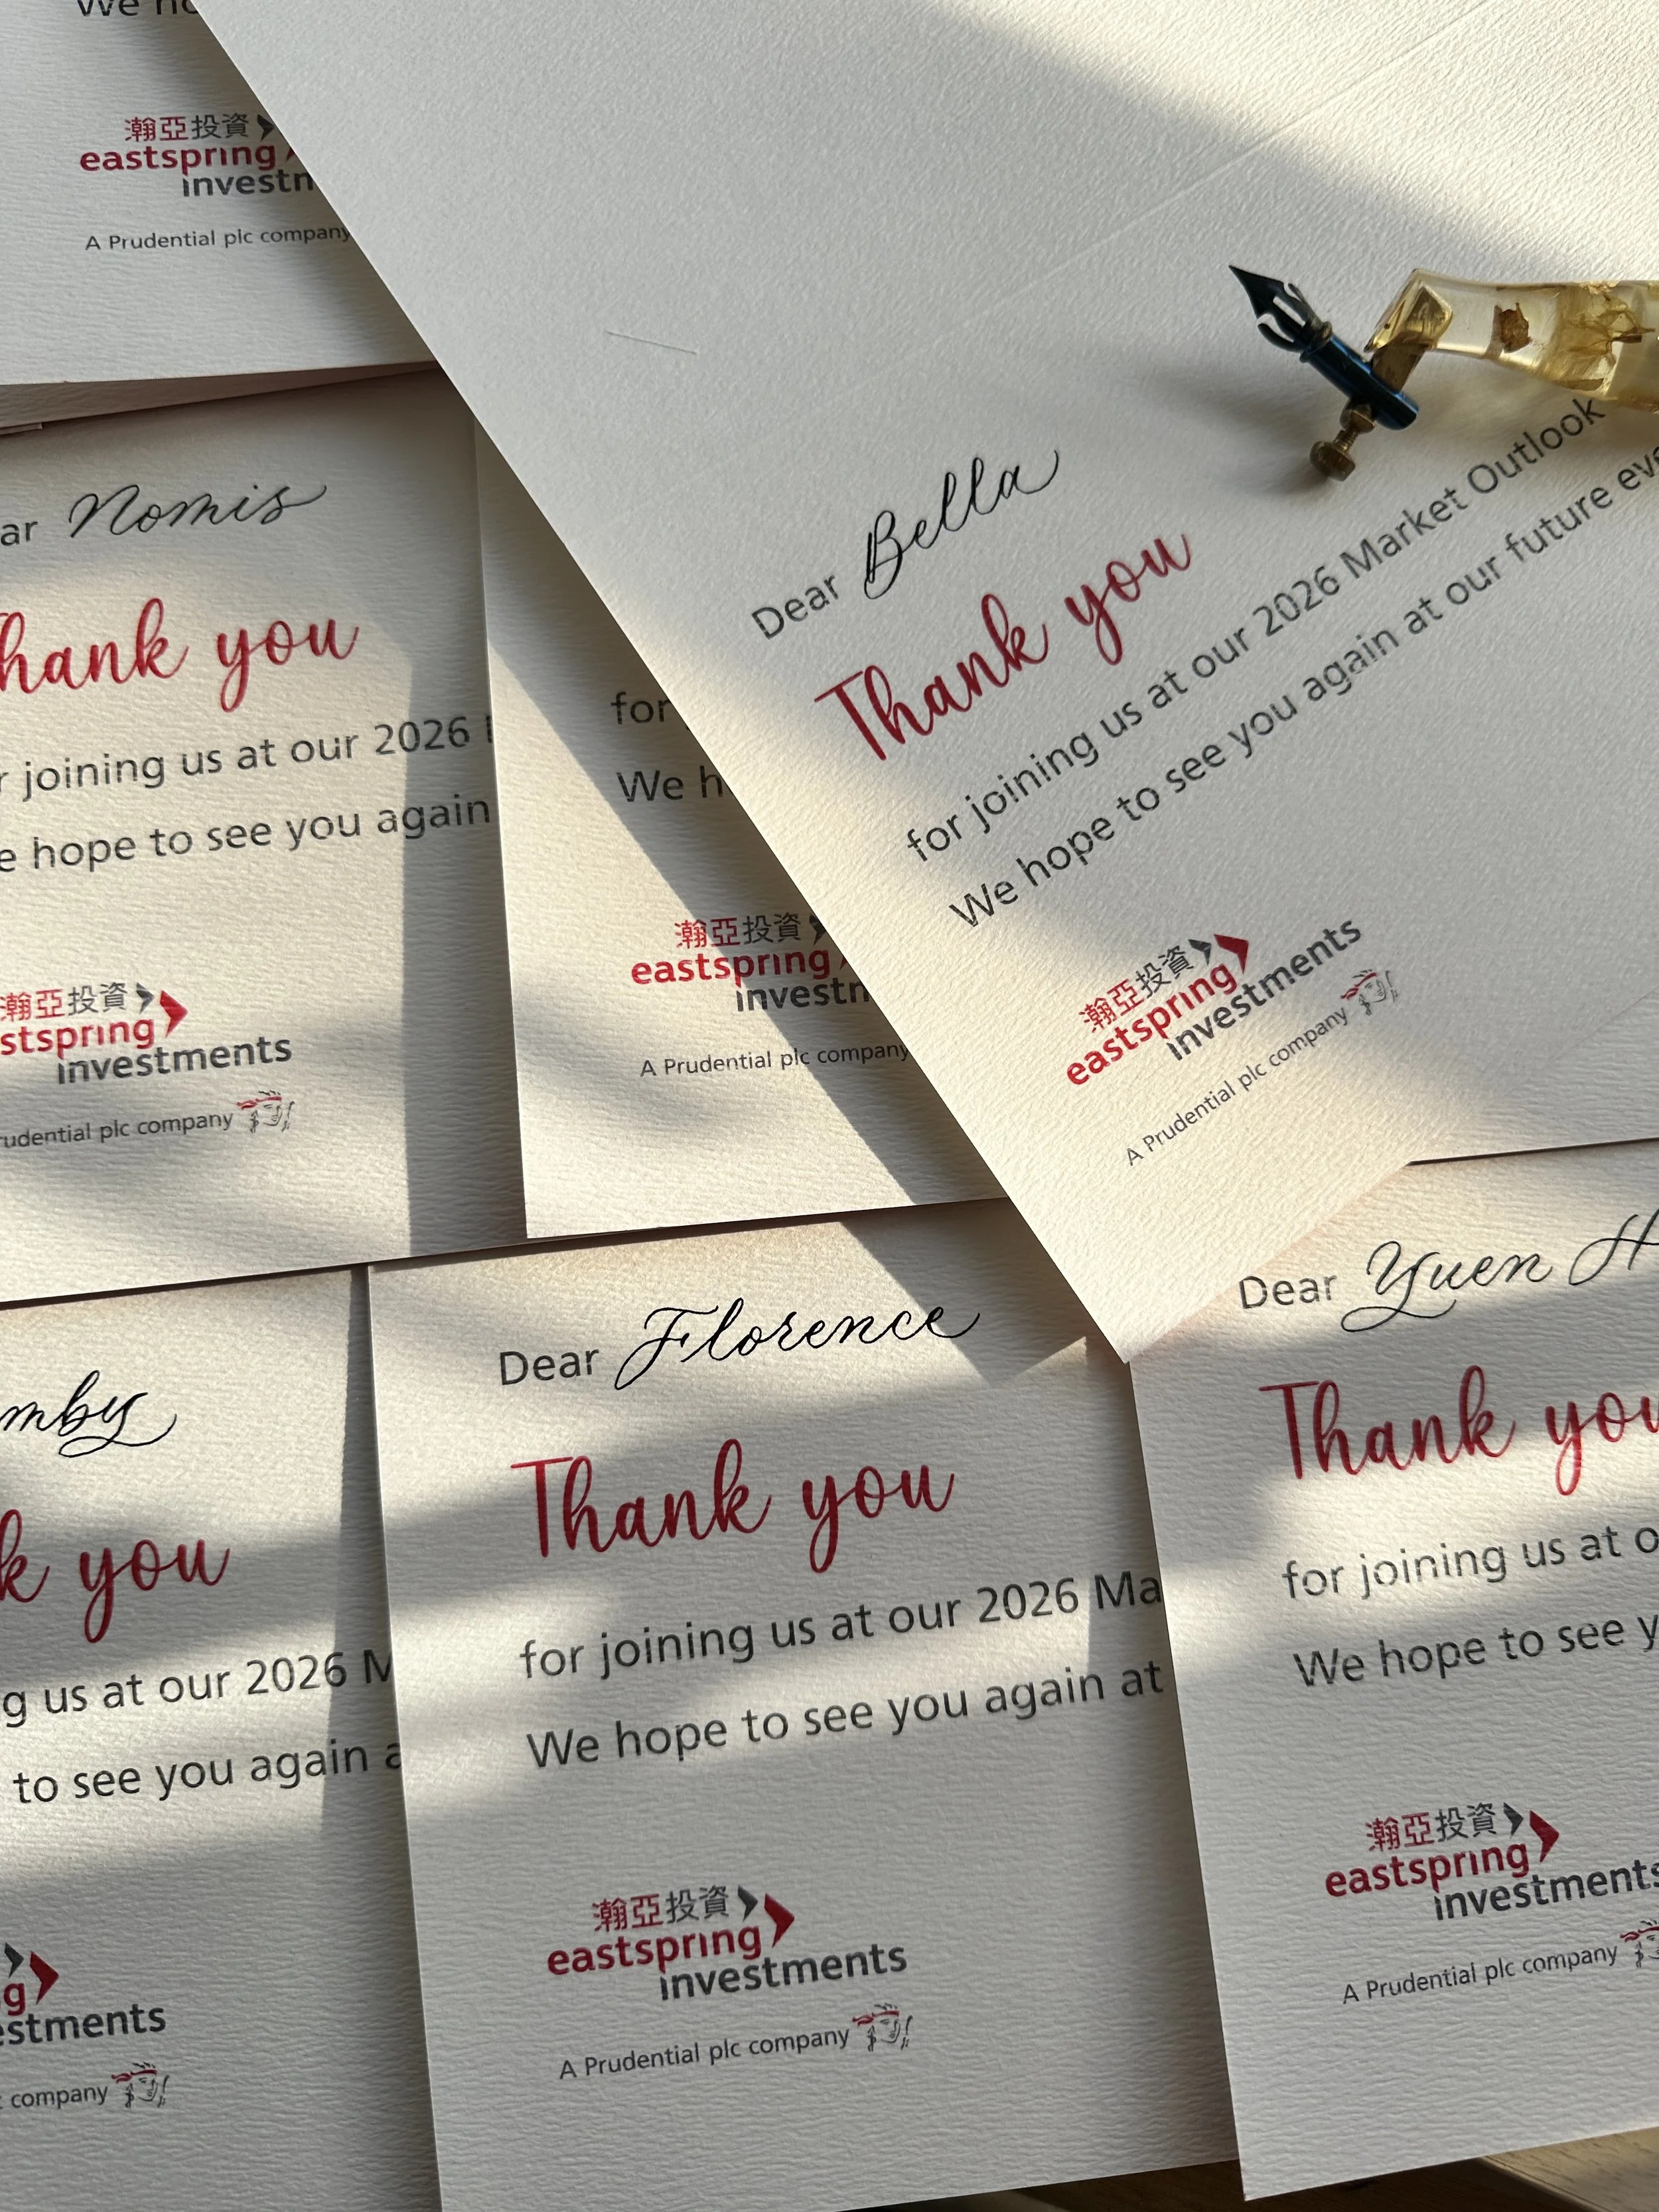 We
瀚亞投資
eastspring
investm
A Prudential plc company
Dear Bella
Thank you
for joining us at our 2026 Market Outlook
We hope to see you again at our future
瀚亞投資
eastspring
investments
A Prudential plc company
Nomis
Thank you
joining us at our 2026
hope to see you again
瀚亞投資
eastspring
investments
Prudential plc company
for
We
瀚亞投資
eastspring
investm
A Prudential plc company
you
us at our 2026
to see you again
investments
company
Dear Florence
Thank you
for joining us at our 2026 Ma
We hope to see you again at
瀚亞投資
eastspring
investments
A Prudential plc company
Dear Yuen H
Thank you
for joining us at
We hope to see
瀚亞投資
eastspring
investments
A Prudential plc company